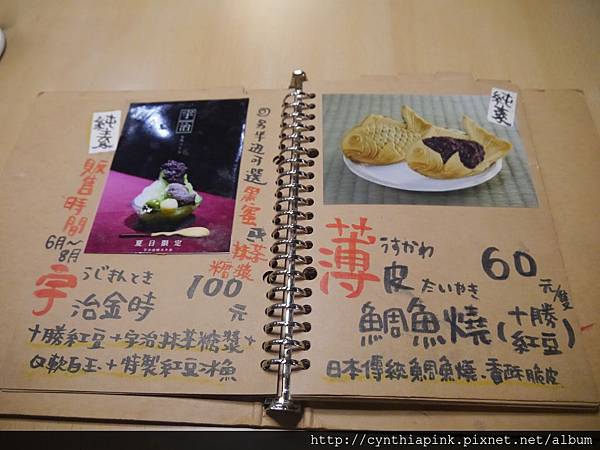 純素
宇治
夏日限定
販售時間
6月~
8月
①另半邊可選
黑蜜或抹茶
糖漿
うじきんとき
宇治金時
100
元
十勝紅豆+宇治抹茶糖漿+
Q軟白玉+特製紅豆冰魚
純素
うすかわ
薄皮
たいやき
60
元/隻
鯛魚燒(十勝紅豆)
日本傳統鯛魚燒、香酥脆皮
http://cynthiapink.pixnet.net/album